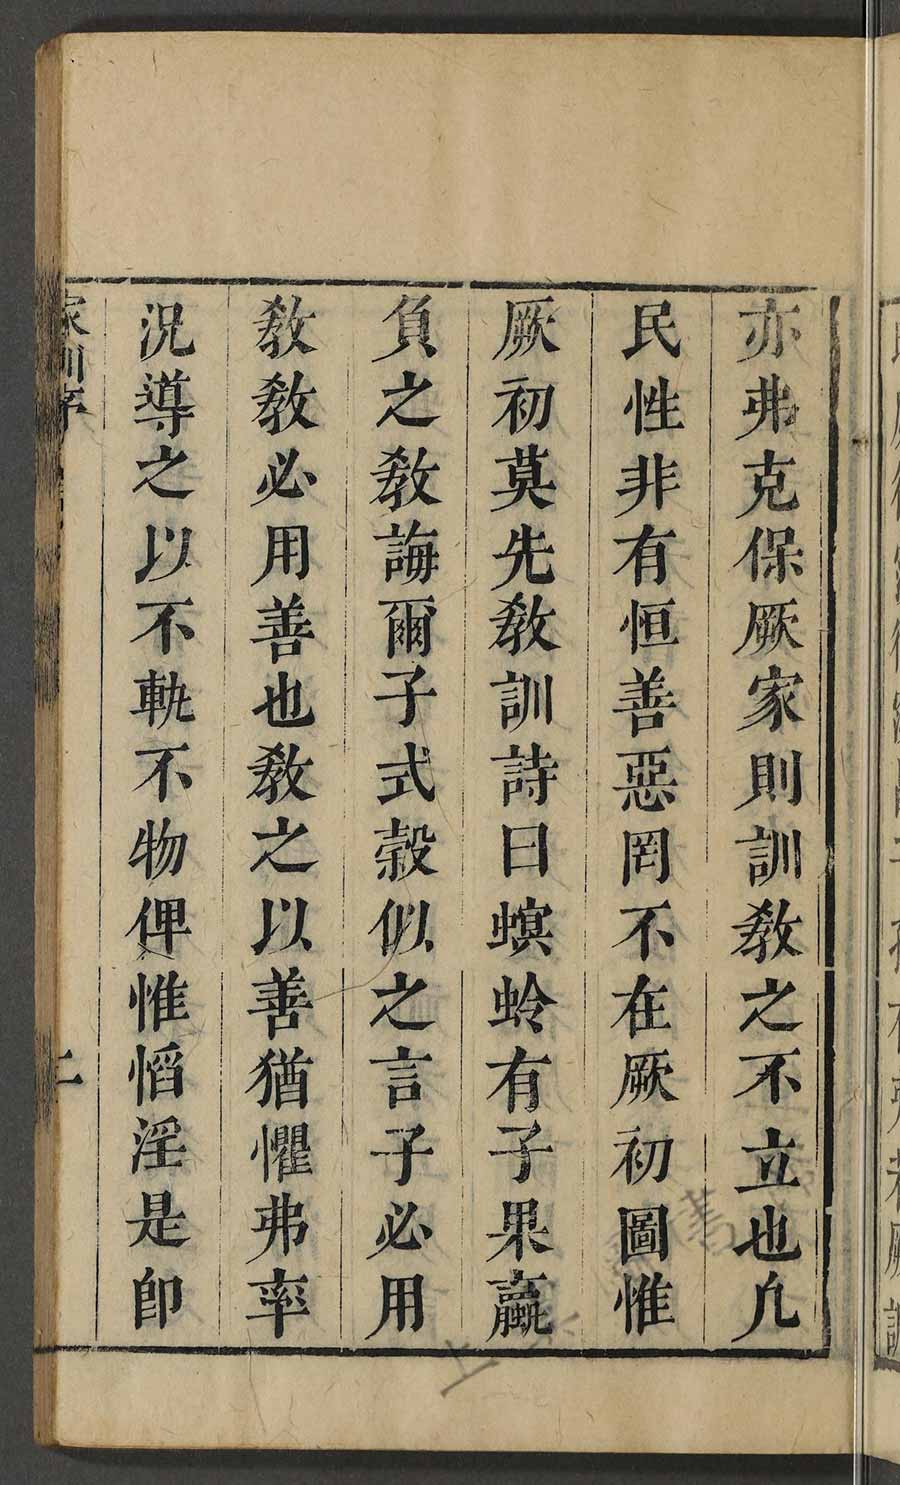 亦弗克保厥家則訓敎之不立也凡
民性非有恒善惡罔不在厥初圖惟
厥初莫先敎訓詩曰螟蛉有子果蠃
負之敎誨爾子式穀似之言子必用
敎敎必用善也敎之以善猶懼弗率
況導之以不軌不物俾惟慆淫是卽
家訓序
二